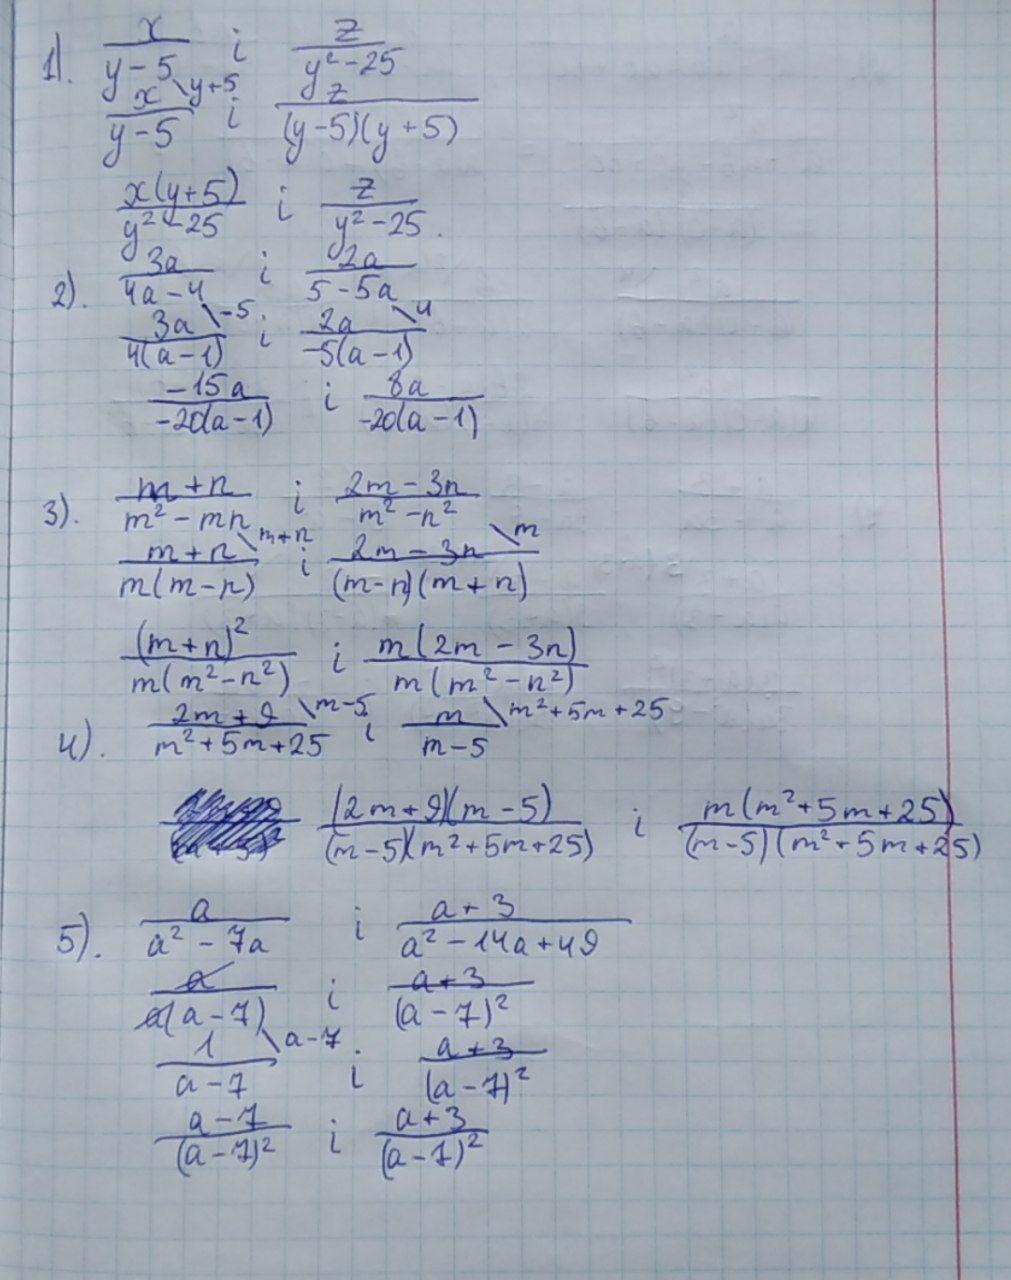 1). x/(y-5) i z/(y²-25)
x/(y-5) \y+5 i z/((y-5)(y+5))
x(y+5)/(y²-25) i z/(y²-25).
2). 3a/(4a-4) i 2a/(5-5a)
3a/(4(a-1)) \-5 i 2a/(-5(a-1)) \4
-15a/(-20(a-1)) i 8a/(-20(a-1))
3). (m+n)/(m²-mn) i (2m-3n)/(m²-n²)
(m+n)/(m(m-n)) \m+n i (2m-3n)/((m-n)(m+n)) \m
(m+n)²/(m(m²-n²)) i m(2m-3n)/(m(m²-n²))
4). (2m+9)/(m²+5m+25) \m-5 i m/(m-5) \m²+5m+25
(2m+9)(m-5)/((m-5)(m²+5m+25)) i m(m²+5m+25)/((m-5)(m²+5m+25))
5). a/(a²-7a) i (a+3)/(a²-14a+49)
a/(a(a-7)) i (a+3)/(a-7)²
1/(a-7) \a-7 i (a+3)/(a-7)²
(a-7)/(a-7)² i (a+3)/(a-7)²